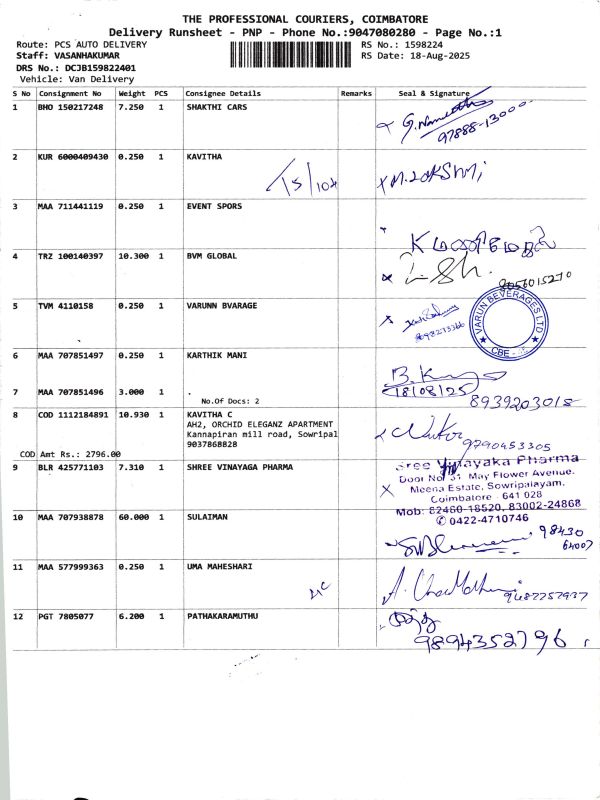 THE PROFESSIONAL COURIERS, COIMBATORE
Delivery Runsheet - PNP - Phone No.:9047080280 - Page No.:1
Route: PCS AUTO DELIVERY
RS No.: 1598224
Staff: VASANHAKUMAR
RS Date: 18-Aug-2025
DRS No.: DCJB159822401
Vehicle: Van Delivery
S No Consignment No Weight PCS Consignee Details Remarks Seal & Signature
1 BHO 150217248 7.250 1 SHAKTHI CARS
97888-13000
2 KUR 6000409430 0.250 1 KAVITHA
3 MAA 711441119 0.250 1 EVENT SPORS
4 TRZ 100140397 10.300 1 BVM GLOBAL
9056015270
5 TVM 4110158 0.250 1 VARUNN BVARAGE
VARUN BEVERAGES LTD
CBE
6 MAA 707851497 0.250 1 KARTHIK MANI
18/08/25
7 MAA 707851496 3.000 1 .
No.Of Docs: 2
8939203018
8 COD 1112184891 10.930 1 KAVITHA C
AH2, ORCHID ELEGANZ APARTMENT
Kannapiran mill road, Sowripal
9037868828
9790453305
COD Amt Rs.: 2796.00
9 BLR 425771103 7.310 1 SHREE VINAYAGA PHARMA
Sree Vinayaka Pharma
Door No. 31 May Flower Avenue.
Meena Estate, Sowripalayam.
Coimbatore - 641 028
Mob: 82460-18520, 83002-24868
✆ 0422-4710746
10 MAA 707938878 60.000 1 SULAIMAN
98430
64007
11 MAA 577999363 0.250 1 UMA MAHESHARI
12 PGT 7805077 6.200 1 PATHAKARAMUTHU
9894352796